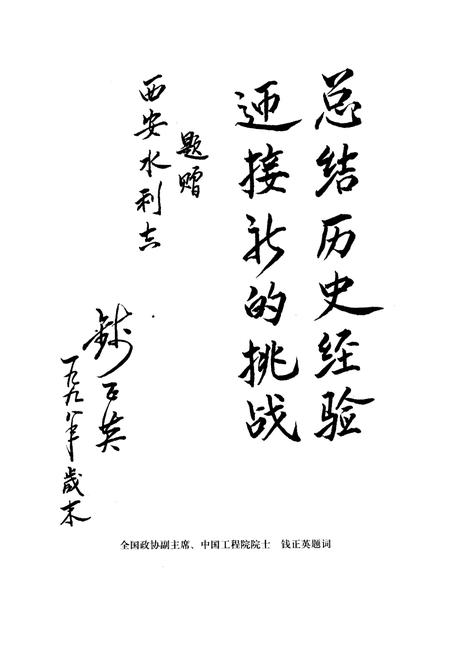 总结历史经验
迎接新的挑战
题赠
西安水利志
钱正英
一九九八年歲末
全国政协副主席、中国工程院院士 钱正英题词